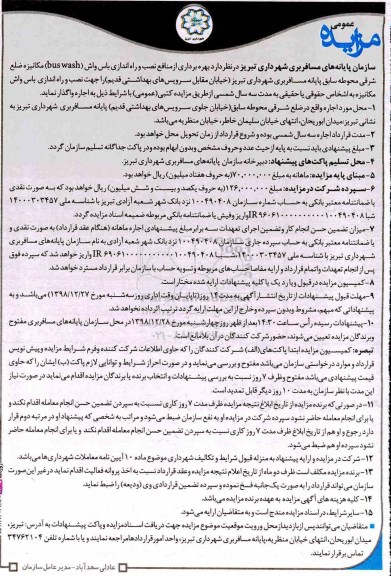 مزایده عمومی
سازمان پایانه‌های مسافربری شهرداری تبریز در نظر دارد بهره برداری از منافع نصب و راه اندازی باس واش (bus wash) مکانیزه ضلع
شرقی محوطه سابق پایانه مسافربری شهرداری تبریز (خیابان مقابل سرویس‌های بهداشتی قدیم) را جهت نصب و راه اندازی باس واش
مکانیزه به اشخاص حقوقی یا حقیقی به مدت سه سال شمسی از طریق مزایده کتبی (عمومی) با شرایط ذیل به اجاره واگذار نماید.
۱- محل مورد اجاره واقع در ضلع شرقی محوطه سابق (خیابان جلوی سرویس‌های بهداشتی قدیم) پایانه مسافربری شهرداری تبریز به
نشانی تبریز، میدان ابوریحان، انتهای خیابان سلیمان خاطر، خیابان منظریه می‌باشد.
۲- مدت قرارداد اجاره سه سال شمسی بوده و شروع قرارداد از زمان تحویل محل خواهد بود.
۳- مبلغ پیشنهادی باید نسبت به پایه از حیث عدد و حروف مشخص و بدون ابهام بوده و در پاکت جداگانه تسلیم سازمان گردد.
۴- محل تسلیم پاکت‌های پیشنهاد: دبیرخانه سازمان پایانه‌های مسافربری شهرداری تبریز
۵- مبنای پایه مزایده: ماهانه به مبلغ ۷۰،۰۰۰،۰۰۰ (به حروف هفتاد میلیون) ریال خواهد بود.
۶- سپرده شرکت در مزایده: مبلغ ۱۲۶،۰۰۰،۰۰۰ (به حروف یکصد و بیست و شش میلیون) ریال خواهد بود که به صورت نقدی
یا ضمانتنامه معتبر بانکی به حساب شماره سازمان ۱۰۰۴۹۰۴۰۸ نزد بانک شهر شعبه آزادی تبریز با شناسه ملی ۱۴۰۰۰۳۰۳۴۵۷
شبا واریز و فیش یا ضمانتنامه بانکی مربوطه ضمیمه اسناد مزایده گردد.
۷- میزان تضمین حسن انجام کار و تضمین اجرای تعهدات سه برابر مبلغ پیشنهادی اجاره ماهانه (هنگام عقد قرارداد) به صورت نقدی و
یا ضمانتنامه معتبر بانکی به حساب سپرده جاری سازمان ۱۰۰۴۹۰۴۰۸ نزد بانک شهر شعبه آزادی به نام سازمان پایانه‌های مسافربری
شهرداری تبریز با شناسه ملی ۱۴۰۰۰۳۰۳۴۵۷ واریز خواهد شد که سپرده فوق
پس از انجام تعهدات و اتمام قرارداد و ارایه مفاصا حساب‌های مربوطه و تسویه حساب با سازمان برابر قرارداد مسترد خواهد شد.
۸- کمیسیون مزایده در قبول و یا رد یک یا کلیه پیشنهادات ارایه شده مختار است.
۹- مهلت قبول پیشنهادات از تاریخ انتشار آگهی به مدت ۱۴ روز (تا پایان وقت اداری روز سه‌شنبه مورخ ۱۳۹۸/۱۲/۲۷) می‌باشد و به
پیشنهاداتی که مبهم، مشروط و بدون سپرده و خارج از این مهلت ارایه گردد ترتیب اثر داده نخواهد شد.
۱۰- پیشنهادات رسیده رأس ساعت ۱۴:۳۰ بعد از ظهر روز چهارشنبه مورخ ۱۳۹۸/۱۲/۲۸ در محل سازمان پایانه‌های مسافربری مفتوح
و برندگان مزایده تعیین می‌شوند، حضور شرکت کنندگان در آن بلامانع است.
تبصره: کمیسیون مزایده ابتدا پاکت‌های (الف) شرکت کنندگان را که حاوی اطلاعات شرکت کننده و فرم شرایط مزایده و پیش نویس
قرارداد و موارد درخواستی سازمان می‌باشد مفتوح و بررسی می‌نماید و در صورت احراز شرایط و توانایی لازم پاکت (ب) ایشان را که حاوی
قیمت پیشنهادی می‌باشد مفتوح و ظرف ۷ روز نسبت به بررسی پیشنهادات و انتخاب برنده یا برندگان مزایده اقدام می‌نماید در صورت نیاز
این مدت با نظر سازمان به مدت ۱۰ روز دیگر قابل تمدید است.
۱۱- در صورتی که برنده مزایده از تاریخ ابلاغ نتیجه مزایده ظرف مدت ۷ روز کاری نسبت به سپردن تضمین حسن انجام معامله اقدام نکند و
یا برای انجام معامله حاضر نشود سپرده شرکت در مزایده او به نفع سازمان ضبط می‌شود و مراتب به شخصی که پیشنهاد او در مرتبه دوم قرار
دارد رجوع و او هم از تاریخ ابلاغ ظرف مدت ۷ روز کاری نسبت به سپردن تضمین حسن انجام معامله اقدام نکند و یا برای انجام معامله حاضر
نشود سپرده او هم ضبط می‌شود.
۱۲- شرکت در مزایده و ارایه پیشنهاد به منزله قبول شرایط و تکالیف شهرداری موضوع ماده ۱۰ آیین نامه معاملات شهرداری‌ها می‌باشد.
۱۳- برنده مزایده مکلف است ظرف دو ماه از تاریخ اعلام نتیجه مزایده و عقد قرارداد نسبت به اخذ پروانه فعالیت اقدام نماید در غیر این صورت
سازمان می‌تواند قرارداد را به صورت یک جانبه فسخ نموده و سپرده تضمین قراردادی وی (ودیعه) را ضبط نماید.
۱۴- کلیه هزینه‌های آگهی مزایده به عهده برنده مزایده می‌باشد.
۱۵- سایر شرایط، در اسناد مزایده مندرج است و به متقاضیان ارایه می‌شود.
متقاضیان می‌توانند پس از بازدید از محل و رویت موقعیت موضوع مزایده جهت دریافت اسناد مزایده و پاکت پیشنهادات به آدرس: تبریز،
میدان ابوریحان، انتهای خیابان منظریه، پایانه مسافربری تبریز، واحد امور قراردادها مراجعه نمایند و یا با شماره تلفن ۳۴۷۶۲۱۰۴
تماس برقرار نمایند.
عادلی سعدآباد - مدیرعامل سازمان